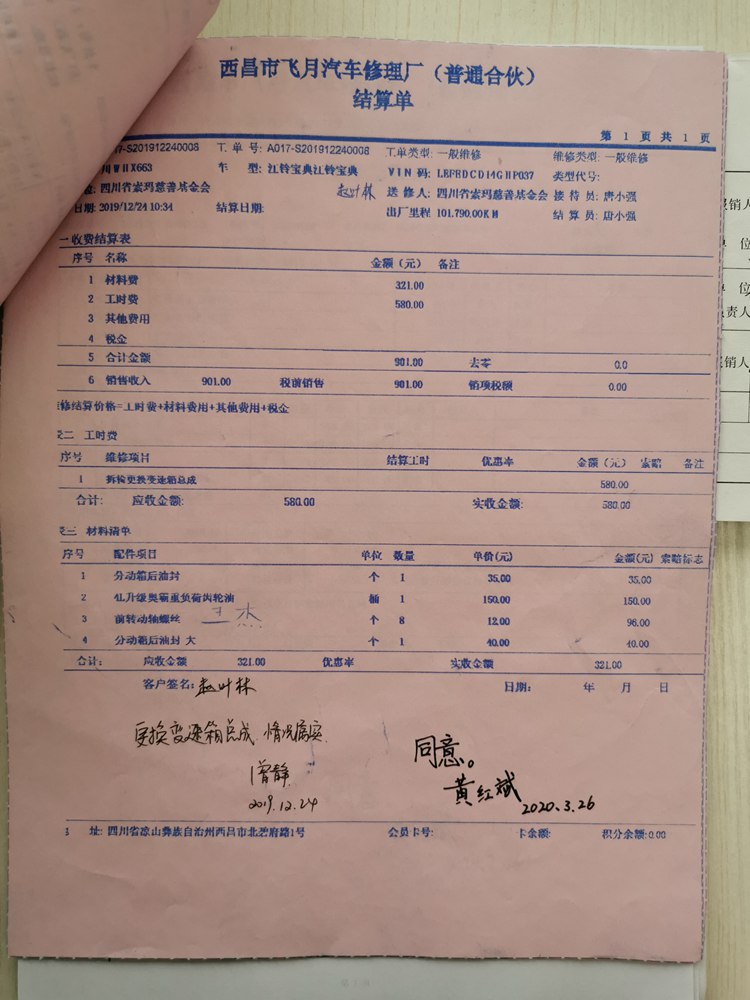 西昌市飞月汽车修理厂（普通合伙）
结算单
第 1 页 共 1 页
17-S201912240008 工单号: A017-S201912240008 工单类型: 一般维修 维修类型: 一般维修
川WHX663 车 型: 江铃宝典江铃宝典 VIN 码: LEFRDCD14GHP037 类型代号:
四川省索玛慈善基金会 赵叶林 送修人: 四川省索玛慈善基金会 接待员: 唐小强
日期: 2019/12/24 10:34 结算日期: 出厂里程 101,790.00KM 结算员: 唐小强
一 收费结算表
序号 名称 金额（元） 备注
1 材料费 321.00
2 工时费 580.00
3 其他费用
4 税金
5 合计金额 901.00 去零 0.0
6 销售收入 901.00 税前销售 901.00 销项税额 0.00
修结算价格=工时费+材料费用+其他费用+税金
二 工时费
序号 维修项目 结算工时 优惠率 金额（元） 索赔 备注
1 拆检更换变速箱总成 580.00
合计: 应收金额: 580.00 实收金额: 580.00
三 材料清单
序号 配件项目 单位 数量 单价(元) 金额(元) 索赔标志
1 分动箱后油封 个 1 35.00 35.00
2 4L升级奥霸重负荷齿轮油 桶 1 150.00 150.00
3 前转动轴螺丝 个 8 12.00 96.00
4 分动箱后油封 大 个 1 40.00 40.00
合计: 应收金额 321.00 优惠率 实收金额: 321.00
客户签名: 赵叶林 日期: 年 月 日
更换变速箱总成 情况属实
曾静
2019.12.24
同意。
黄红斌
2020.3.26
址: 四川省凉山彝族自治州西昌市北碧府路1号 会员卡号: 卡余额: 积分余额:0.00
报销人
单 位
单 位
负责人
报销人